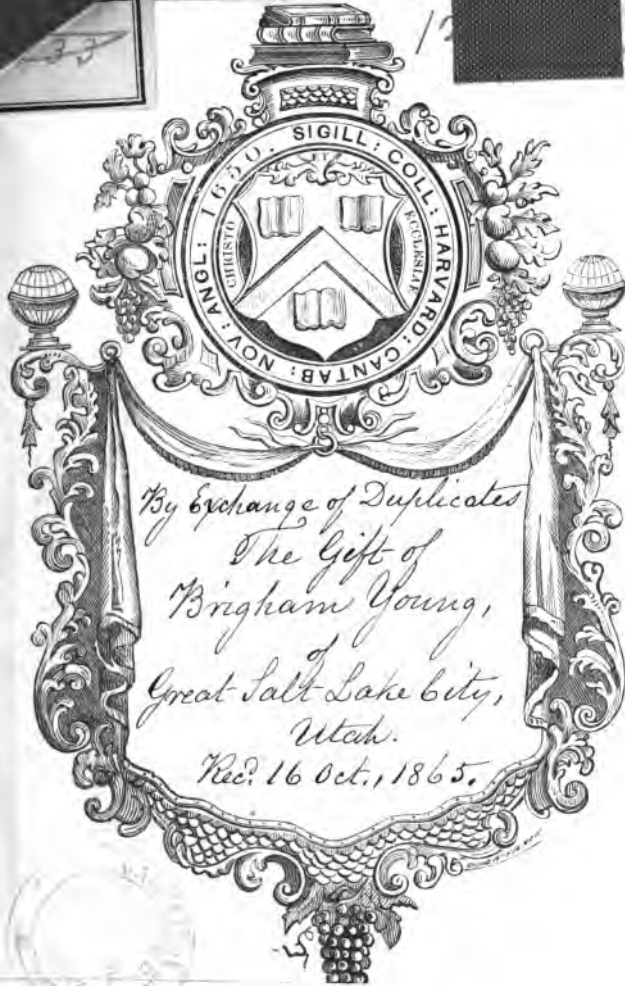 SIGILL: COLL: HARVARD: CANTAB: NOV: ANGL: 1650.
ET
CHRISTO
ECCLESIAE
By Exchange of Duplicates
The Gift of
Brigham Young,
of
Great Salt Lake City,
Utah.
Rec? 16 Oct., 1865.